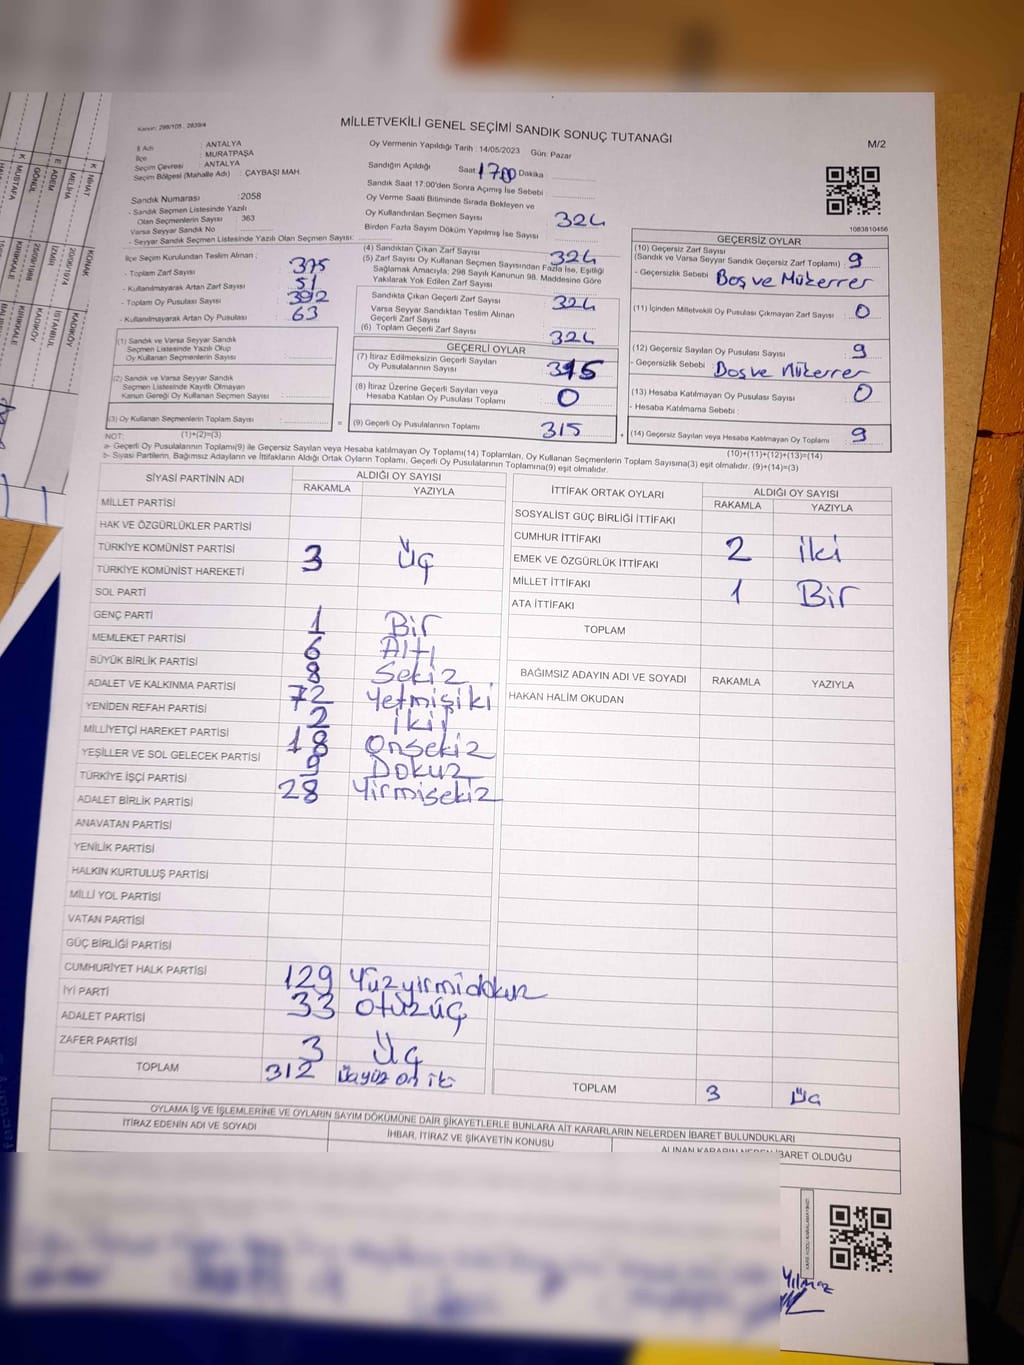 Kanun: 298/105 , 2839/4
MİLLETVEKİLİ GENEL SEÇİMİ SANDIK SONUÇ TUTANAĞI
M/2
İl Adı : ANTALYA
İlçe : MURATPAŞA
Seçim Çevresi : ANTALYA
Seçim Bölgesi (Mahalle Adı) : ÇAYBAŞI MAH.
Oy Vermenin Yapıldığı Tarih : 14/05/2023 Gün: Pazar
Sandığın Açıldığı Saat 1700 Dakika :
Sandık Saat 17:00'den Sonra Açımış İse Sebebi :
Oy Verme Saati Bitiminde Sırada Bekleyen ve
Oy Kullandırılan Seçmen Sayısı 324
Birden Fazla Sayım Döküm Yapılmış İse Sayısı
1083810456
Sandık Numarası :2058
- Sandık Seçmen Listesinde Yazılı
Olan Seçmenlerin Sayısı : 363
Varsa Seyyar Sandık No
- Seyyar Sandık Seçmen Listesinde Yazılı Olan Seçmen Sayısı:
İlçe Seçim Kurulundan Teslim Alınan :
- Toplam Zarf Sayısı 375
- Kullanılmayarak Artan Zarf Sayısı 51
- Toplam Oy Pusulası Sayısı 392
- Kullanılmayarak Artan Oy Pusulası 63
(1) Sandık ve Varsa Seyyar Sandık
Seçmen Listesinde Yazılı Olup
Oy Kullanan Seçmenlerin Sayısı :
(2) Sandık ve Varsa Seyyar Sandık
Seçmen Listesinde Kayıtlı Olmayan
Kanun Gereği Oy Kullanan Seçmen Sayısı :
(3) Oy Kullanan Seçmenlerin Toplam Sayısı :
(1)+(2)=(3)
(4) Sandıktan Çıkan Zarf Sayısı 324
(5) Zarf Sayısı Oy Kullanan Seçmen Sayısından Fazla İse, Eşitliği
Sağlamak Amacıyla; 298 Sayılı Kanunun 98. Maddesine Göre
Yakılarak Yok Edilen Zarf Sayısı
Sandıkta Çıkan Geçerli Zarf Sayısı 324
Varsa Seyyar Sandıktan Teslim Alınan
Geçerli Zarf Sayısı
(6) Toplam Geçerli Zarf Sayısı 324
GEÇERLİ OYLAR
(7) İtiraz Edilmeksizin Geçerli Sayılan
Oy Pusulasının Sayısı 315
(8) İtiraz Üzerine Geçerli Sayılan veya
Hesaba Katılan Oy Pusulası Toplamı 0
= (9) Geçerli Oy Pusulalarının Toplamı 315
GEÇERSİZ OYLAR
(10) Geçersiz Zarf Sayısı
(Sandık ve Varsa Seyyar Sandık Geçersiz Zarf Toplamı) 9
- Geçersizlik Sebebi : Boş ve Mükerrer
(11) İçinden Milletvekili Oy Pusulası Çıkmayan Zarf Sayısı 0
(12) Geçersiz Sayılan Oy Pusulası Sayısı 9
- Geçersizlik Sebebi : Boş ve Mükerrer
(13) Hesaba Katılmayan Oy Pusulası Sayısı 0
- Hesaba Katılmama Sebebi :
+ (14) Geçersiz Sayılan veya Hesaba Katılmayan Oy Toplamı 9
(10)+(11)+(12)+(13)=(14)
NOT:
a- Geçerli Oy Pusulalarının Toplamı(9) ile Geçersiz Sayılan veya Hesaba Katılmayan Oy Toplamı(14) Toplamları, Oy Kullanan Seçmenlerin Toplam Sayısına(3) eşit olmalıdır. (9)+(14)=(3)
b- Siyasi Partilerin, Bağımsız Adayların ve İttifakların Aldığı Ortak Oyların Toplamı, Geçerli Oy Pusulalarının Toplamına(9) eşit olmalıdır.
SİYASİ PARTİNİN ADI
ALDIĞI OY SAYISI
RAKAMLA YAZIYLA
MİLLET PARTİSİ
HAK VE ÖZGÜRLÜKLER PARTİSİ
TÜRKİYE KOMÜNİST PARTİSİ 3 Üç
TÜRKİYE KOMÜNİST HAREKETİ
SOL PARTİ
GENÇ PARTİ 1 Bir
MEMLEKET PARTİSİ 6 Altı
BÜYÜK BİRLİK PARTİSİ 8 Sekiz
ADALET VE KALKINMA PARTİSİ 72 Yetmişiki
YENİDEN REFAH PARTİSİ 2 iki
MİLLİYETÇİ HAREKET PARTİSİ 18 Onsekiz
YEŞİLLER VE SOL GELECEK PARTİSİ 9 Dokuz
TÜRKİYE İŞÇİ PARTİSİ 28 Yirmisekiz
ADALET BİRLİK PARTİSİ
ANAVATAN PARTİSİ
YENİLİK PARTİSİ
HALKIN KURTULUŞ PARTİSİ
MİLLİ YOL PARTİSİ
VATAN PARTİSİ
GÜÇ BİRLİĞİ PARTİSİ
CUMHURİYET HALK PARTİSİ 129 Yüzyirmidokuz
İYİ PARTİ 33 otuzüç
ADALET PARTİSİ
ZAFER PARTİSİ 3 Üç
TOPLAM 312 üçyüz on iki
İTTİFAK ORTAK OYLARI
ALDIĞI OY SAYISI
RAKAMLA YAZIYLA
SOSYALİST GÜÇ BİRLİĞİ İTTİFAKI
CUMHUR İTTİFAKI 2 iki
EMEK VE ÖZGÜRLÜK İTTİFAKI
MİLLET İTTİFAKI 1 Bir
ATA İTTİFAKI
TOPLAM
BAĞIMSIZ ADAYIN ADI VE SOYADI RAKAMLA YAZIYLA
HAKAN HALİM OKUDAN
TOPLAM 3 üç
OYLAMA İŞ VE İŞLEMLERİNE VE OYLARIN SAYIM DÖKÜMÜNE DAİR ŞİKAYETLERLE BUNLARA AİT KARARLARIN NELERDEN İBARET BULUNDUKLARI
İTİRAZ EDENİN ADI VE SOYADI
İHBAR, İTİRAZ VE ŞİKAYETİN KONUSU
İBARET OLDUĞU
Yılmaz
NİHAT
MELİHA
ADEM
GÖNÜL
MUSTAFA
KONAK
20/06/1974
İZMİR
KADIKÖY
İSTANBUL
KADIKÖY
KIRIKKALE